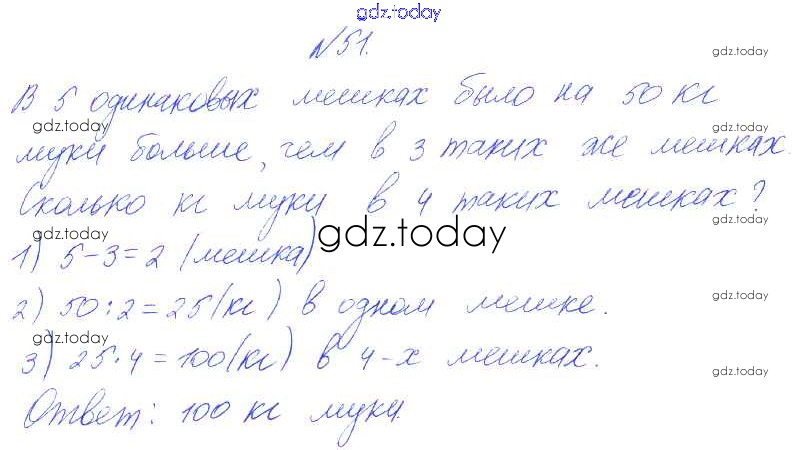 gdz.today
№51.
gdz.today
В 5 одинаковых мешках было на 50 кг
gdz.today
муки больше, чем в 3 таких же мешках.
gdz.today
Сколько кг муки в 4 таких мешках?
1) 5-3=2 (мешка)
gdz.today
gdz.today
2) 50:2=25(кг) в одном мешке.
gdz.today
gdz.today
3) 25·4=100(кг) в 4-х мешках.
gdz.today
Ответ: 100 кг муки.